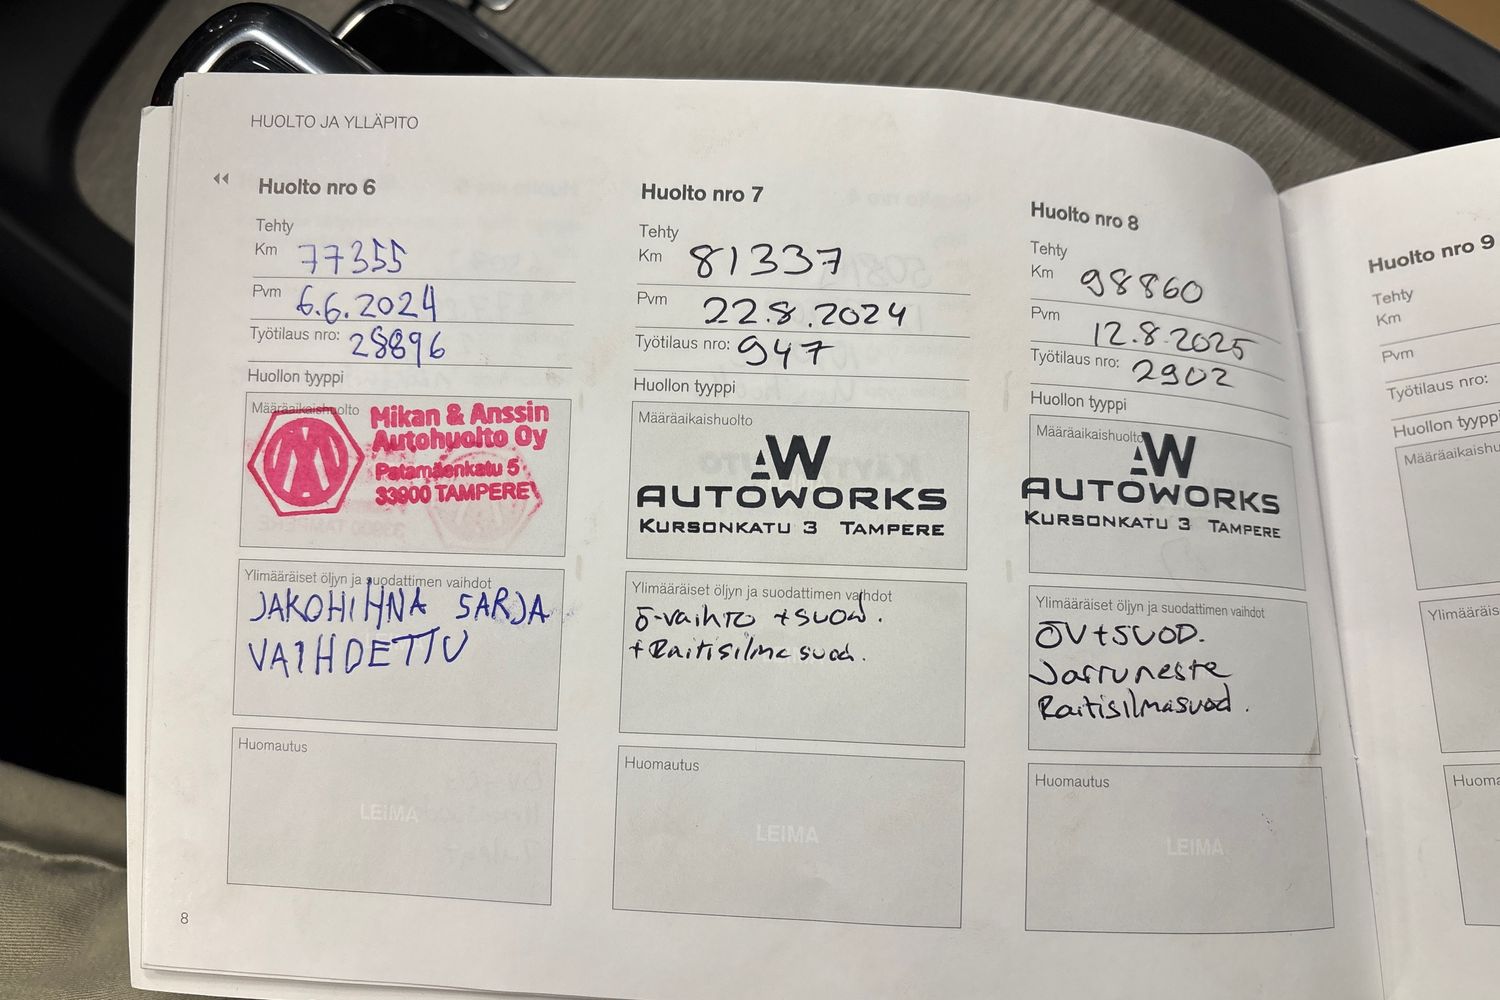 HUOLTO JA YLLÄPITO
Huolto nro 6
Tehty
Km 77355
Pvm 6.6.2024
Työtilaus nro: 28896
Huollon tyyppi
Määräaikaishuolto
Mikan & Anssin
Autohuolto Oy
Patamäenkatu 5
33900 TAMPERE
Ylimääräiset öljyn ja suodattimen vaihdot
JAKOHIHNA SARJA
VAIHDETTU
Huomautus
LEIMA
8
Huolto nro 7
Tehty
Km 81337
Pvm 22.8.2024
Työtilaus nro: 947
Huollon tyyppi
Määräaikaishuolto
AW
AUTOWORKS
KURSONKATU 3 TAMPERE
Ylimääräiset öljyn ja suodattimen vaihdot
ö-vaihto +suod.
+Raitisilma suod.
Huomautus
LEIMA
Huolto nro 8
Tehty
Km 98860
Pvm 12.8.2025
Työtilaus nro: 2902
Huollon tyyppi
Määräaikaishuolto
AW
AUTOWORKS
KURSONKATU 3 TAMPERE
Ylimääräiset öljyn ja suodattimen vaihdot
ÖV+SUOD.
Jarruneste
Raitisilmasuod.
Huomautus
LEIMA
Huolto nro 9
Tehty
Km
Pvm
Työtilaus nro:
Huollon tyyppi
Määräaikaishu
Ylimääräis
Huoma